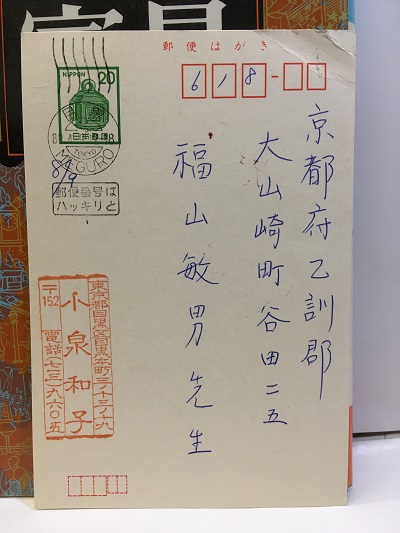 郵便はがき
618-
NIPPON 20
日本郵便
TOKYO
MEGURO
郵便番号は
ハッキリと
京都府乙訓郡
大山崎町谷田二五
福山敏男先生
東京都目黒区目黒本町三ノ十三ノ十九
〒152
小泉和子
電話(七三一)九六〇五